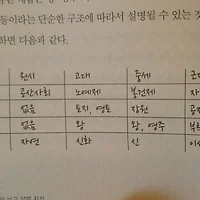 등이라는 단순한 구조에 따라서 설명될 수 있는 것
하면 다음과 같다.
원시 고대 중세 근
공산사회 노예제 봉건제 자
없음 토지, 영토 장원 공
없음 왕 왕, 영주 부르
자연 신화 신 이성